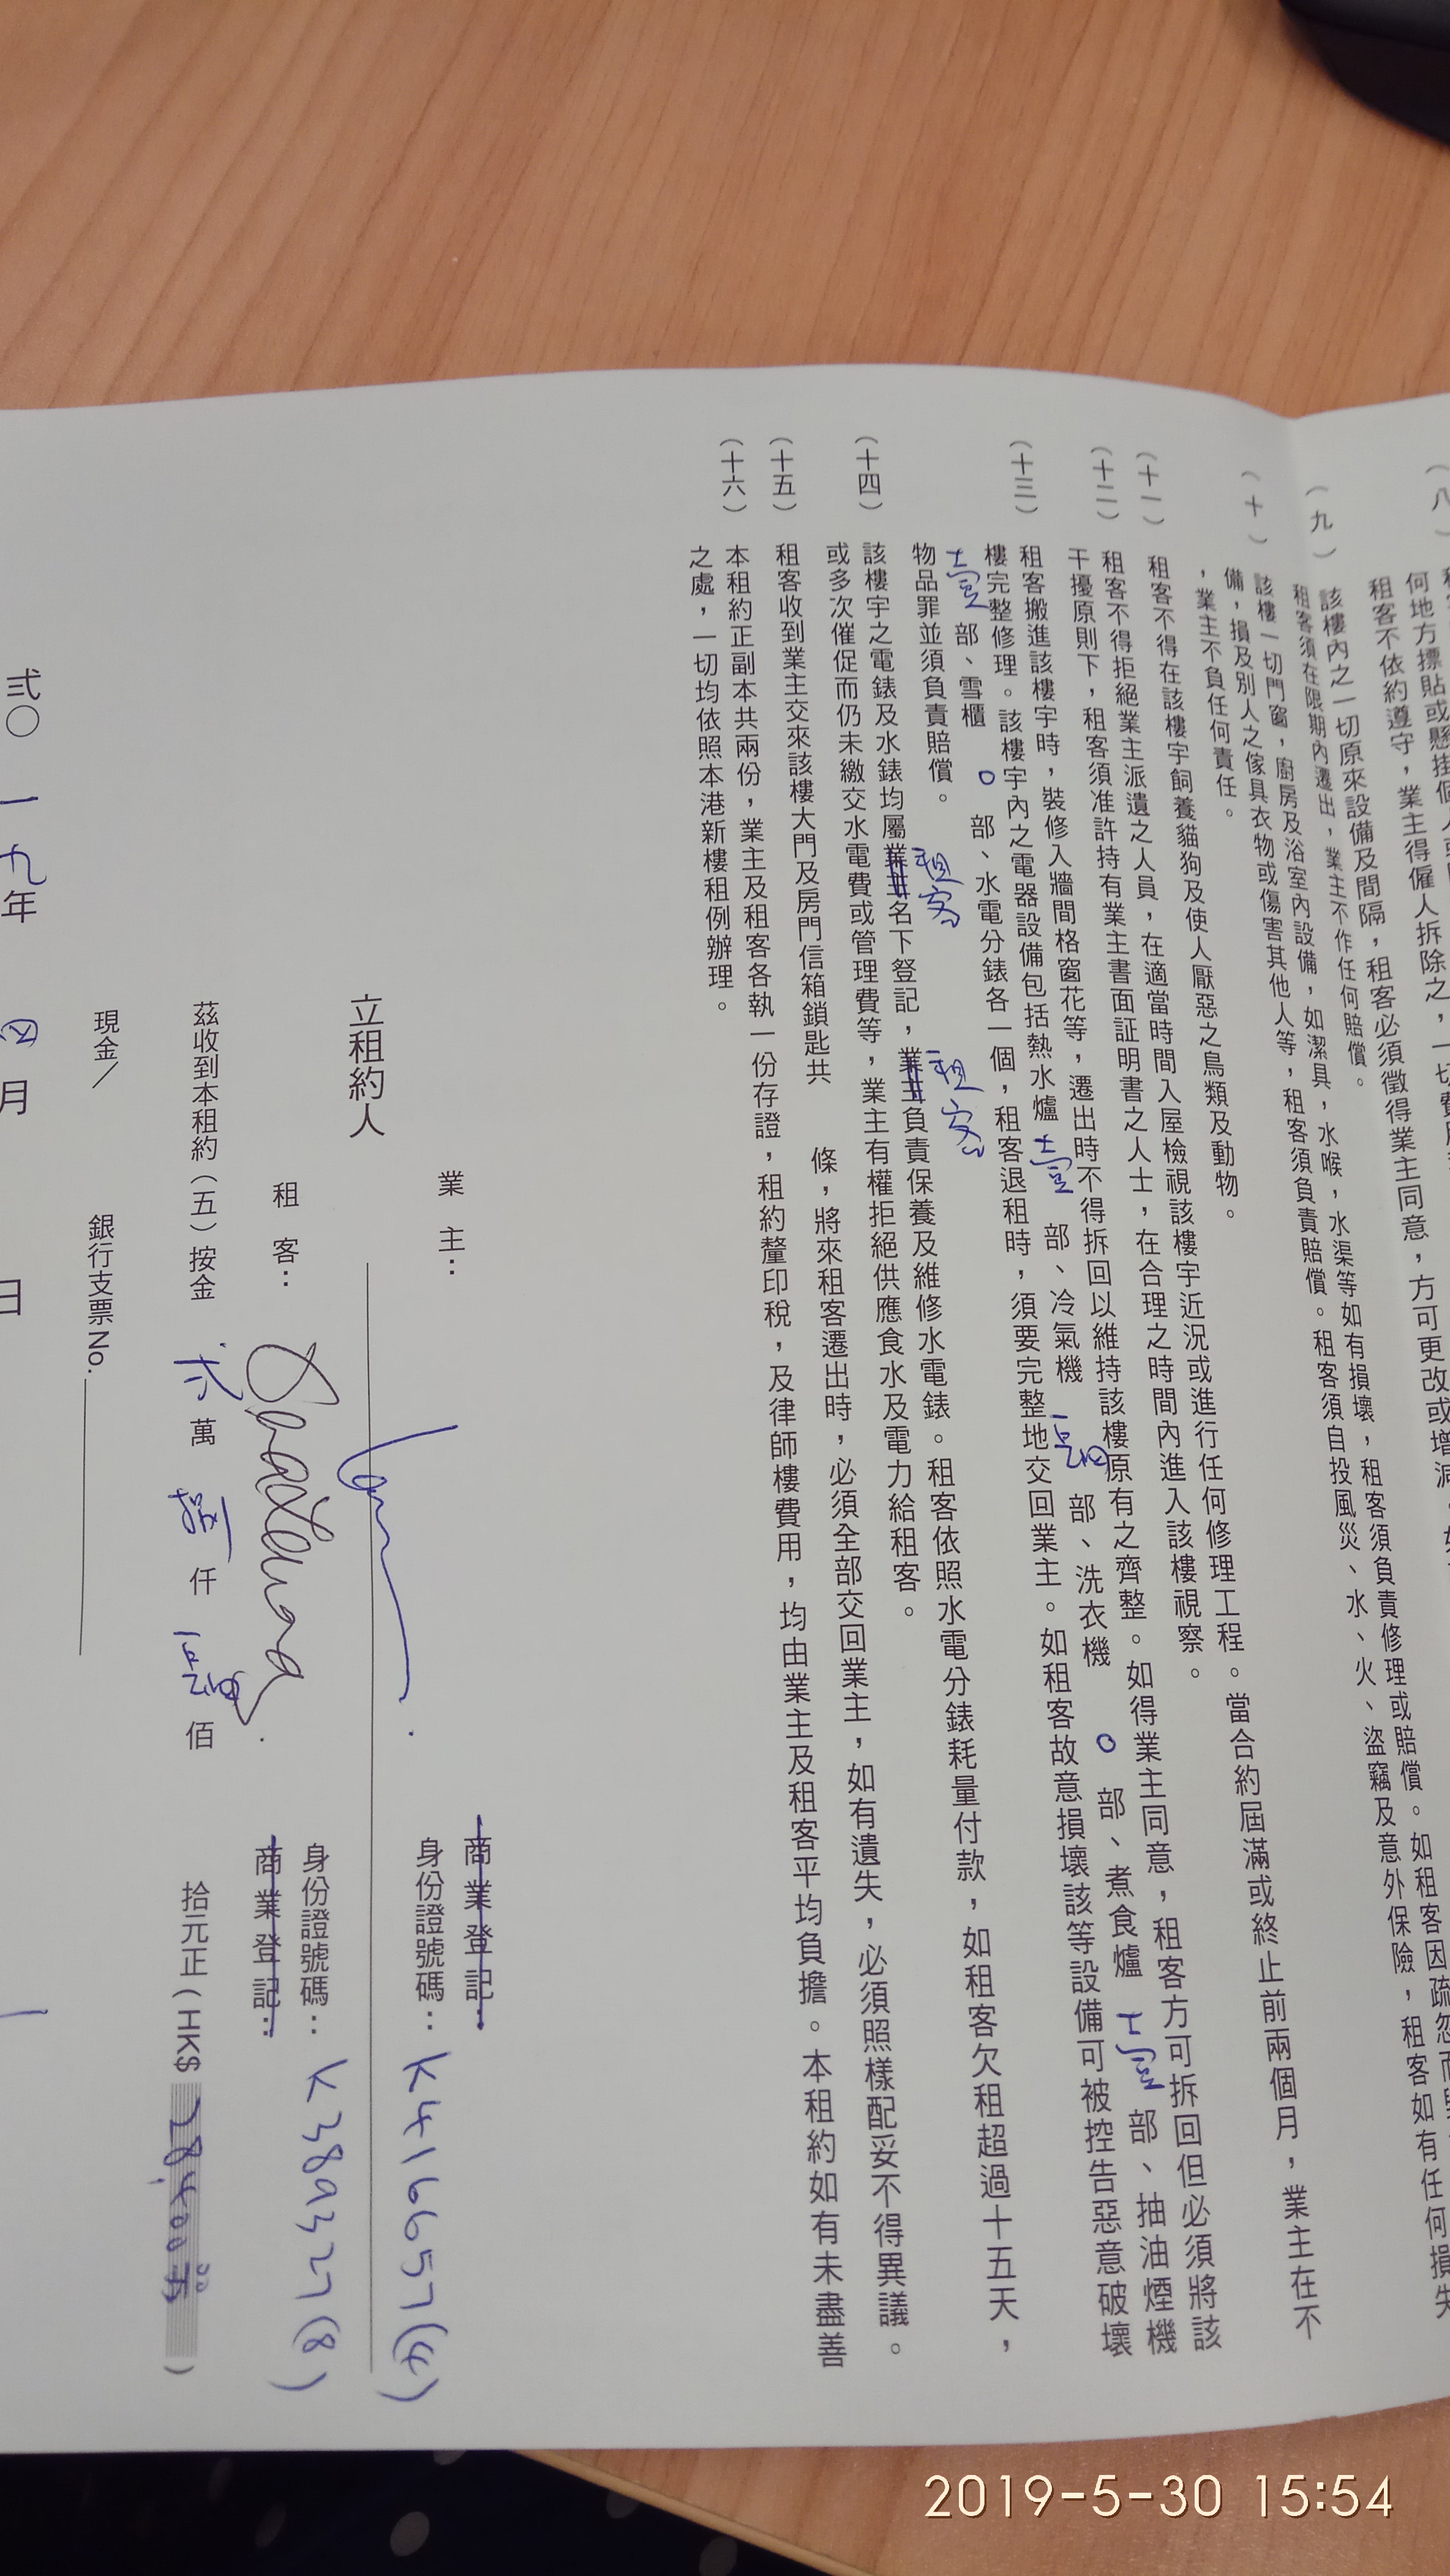 （八）
何地方摽貼或懸掛個人
租客不依約遵守，業主得僱人拆除之，一切費
（九） 該樓內之一切原來設備及間隔，租客必須徵得業主同意，方可更改或增減。
租客須在限期內遷出，業主不作任何賠償。
（十） 該樓一切門窗，廚房及浴室內設備，如潔具，水喉，水渠等如有損壞，租客須負責修理或賠償。如租客因疏忽而
備，損及別人之傢具衣物或傷害其他人等，租客須負責賠償。租客須自投風災、水、火、盜竊及意外保險，租客如有任何損失
，業主不負任何責任。
（十一） 租客不得在該樓宇飼養貓狗及使人厭惡之鳥類及動物。
（十二） 租客不得拒絕業主派遺之人員，在適當時間入屋檢視該樓宇近況或進行任何修理工程。當合約屆滿或終止前兩個月，業主在不
干擾原則下，租客須准許持有業主書面証明書之人士，在合理之時間內進入該樓視察。
（十三） 租客搬進該樓宇時，裝修入牆間格窗花等，遷出時不得拆回以維持該樓原有之齊整。如得業主同意，租客方可拆回但必須將該
樓完整修理。該樓宇內之電器設備包括熱水爐 壹 部、冷氣機 肆 部、洗衣機 0 部、煮食爐 壹 部、抽油煙機
壹 部、雪櫃 0 部、水電分錶各一個，租客退租時，須要完整地交回業主。如租客故意損壞該等設備可被控告惡意破壞
物品罪並須負責賠償。
租客 租客
（十四） 該樓宇之電錶及水錶均屬業主名下登記，業主負責保養及維修水電錶。租客依照水電分錶耗量付款，如租客欠租超過十五天，
或多次催促而仍未繳交水電費或管理費等，業主有權拒絕供應食水及電力給租客。
（十五） 租客收到業主交來該樓大門及房門信箱鎖匙共 條，將來租客遷出時，必須全部交回業主，如有遺失，必須照樣配妥不得異議。
（十六） 本租約正副本共兩份，業主及租客各執一份存證，租約釐印稅，及律師樓費用，均由業主及租客平均負擔。本租約如有未盡善
之處，一切均依照本港新樓租例辦理。
商業登記：
業主： 身份證號碼：K416657(4)
立租約人
租客： 身份證號碼：K389327(8)
商業登記：
茲收到本租約（五）按金 弍 萬 捌 仟 肆 佰 拾元正（HK$ 28,400 ）
現金／ 銀行支票No.
弍〇一九年 四月 日
2019-5-30 15:54